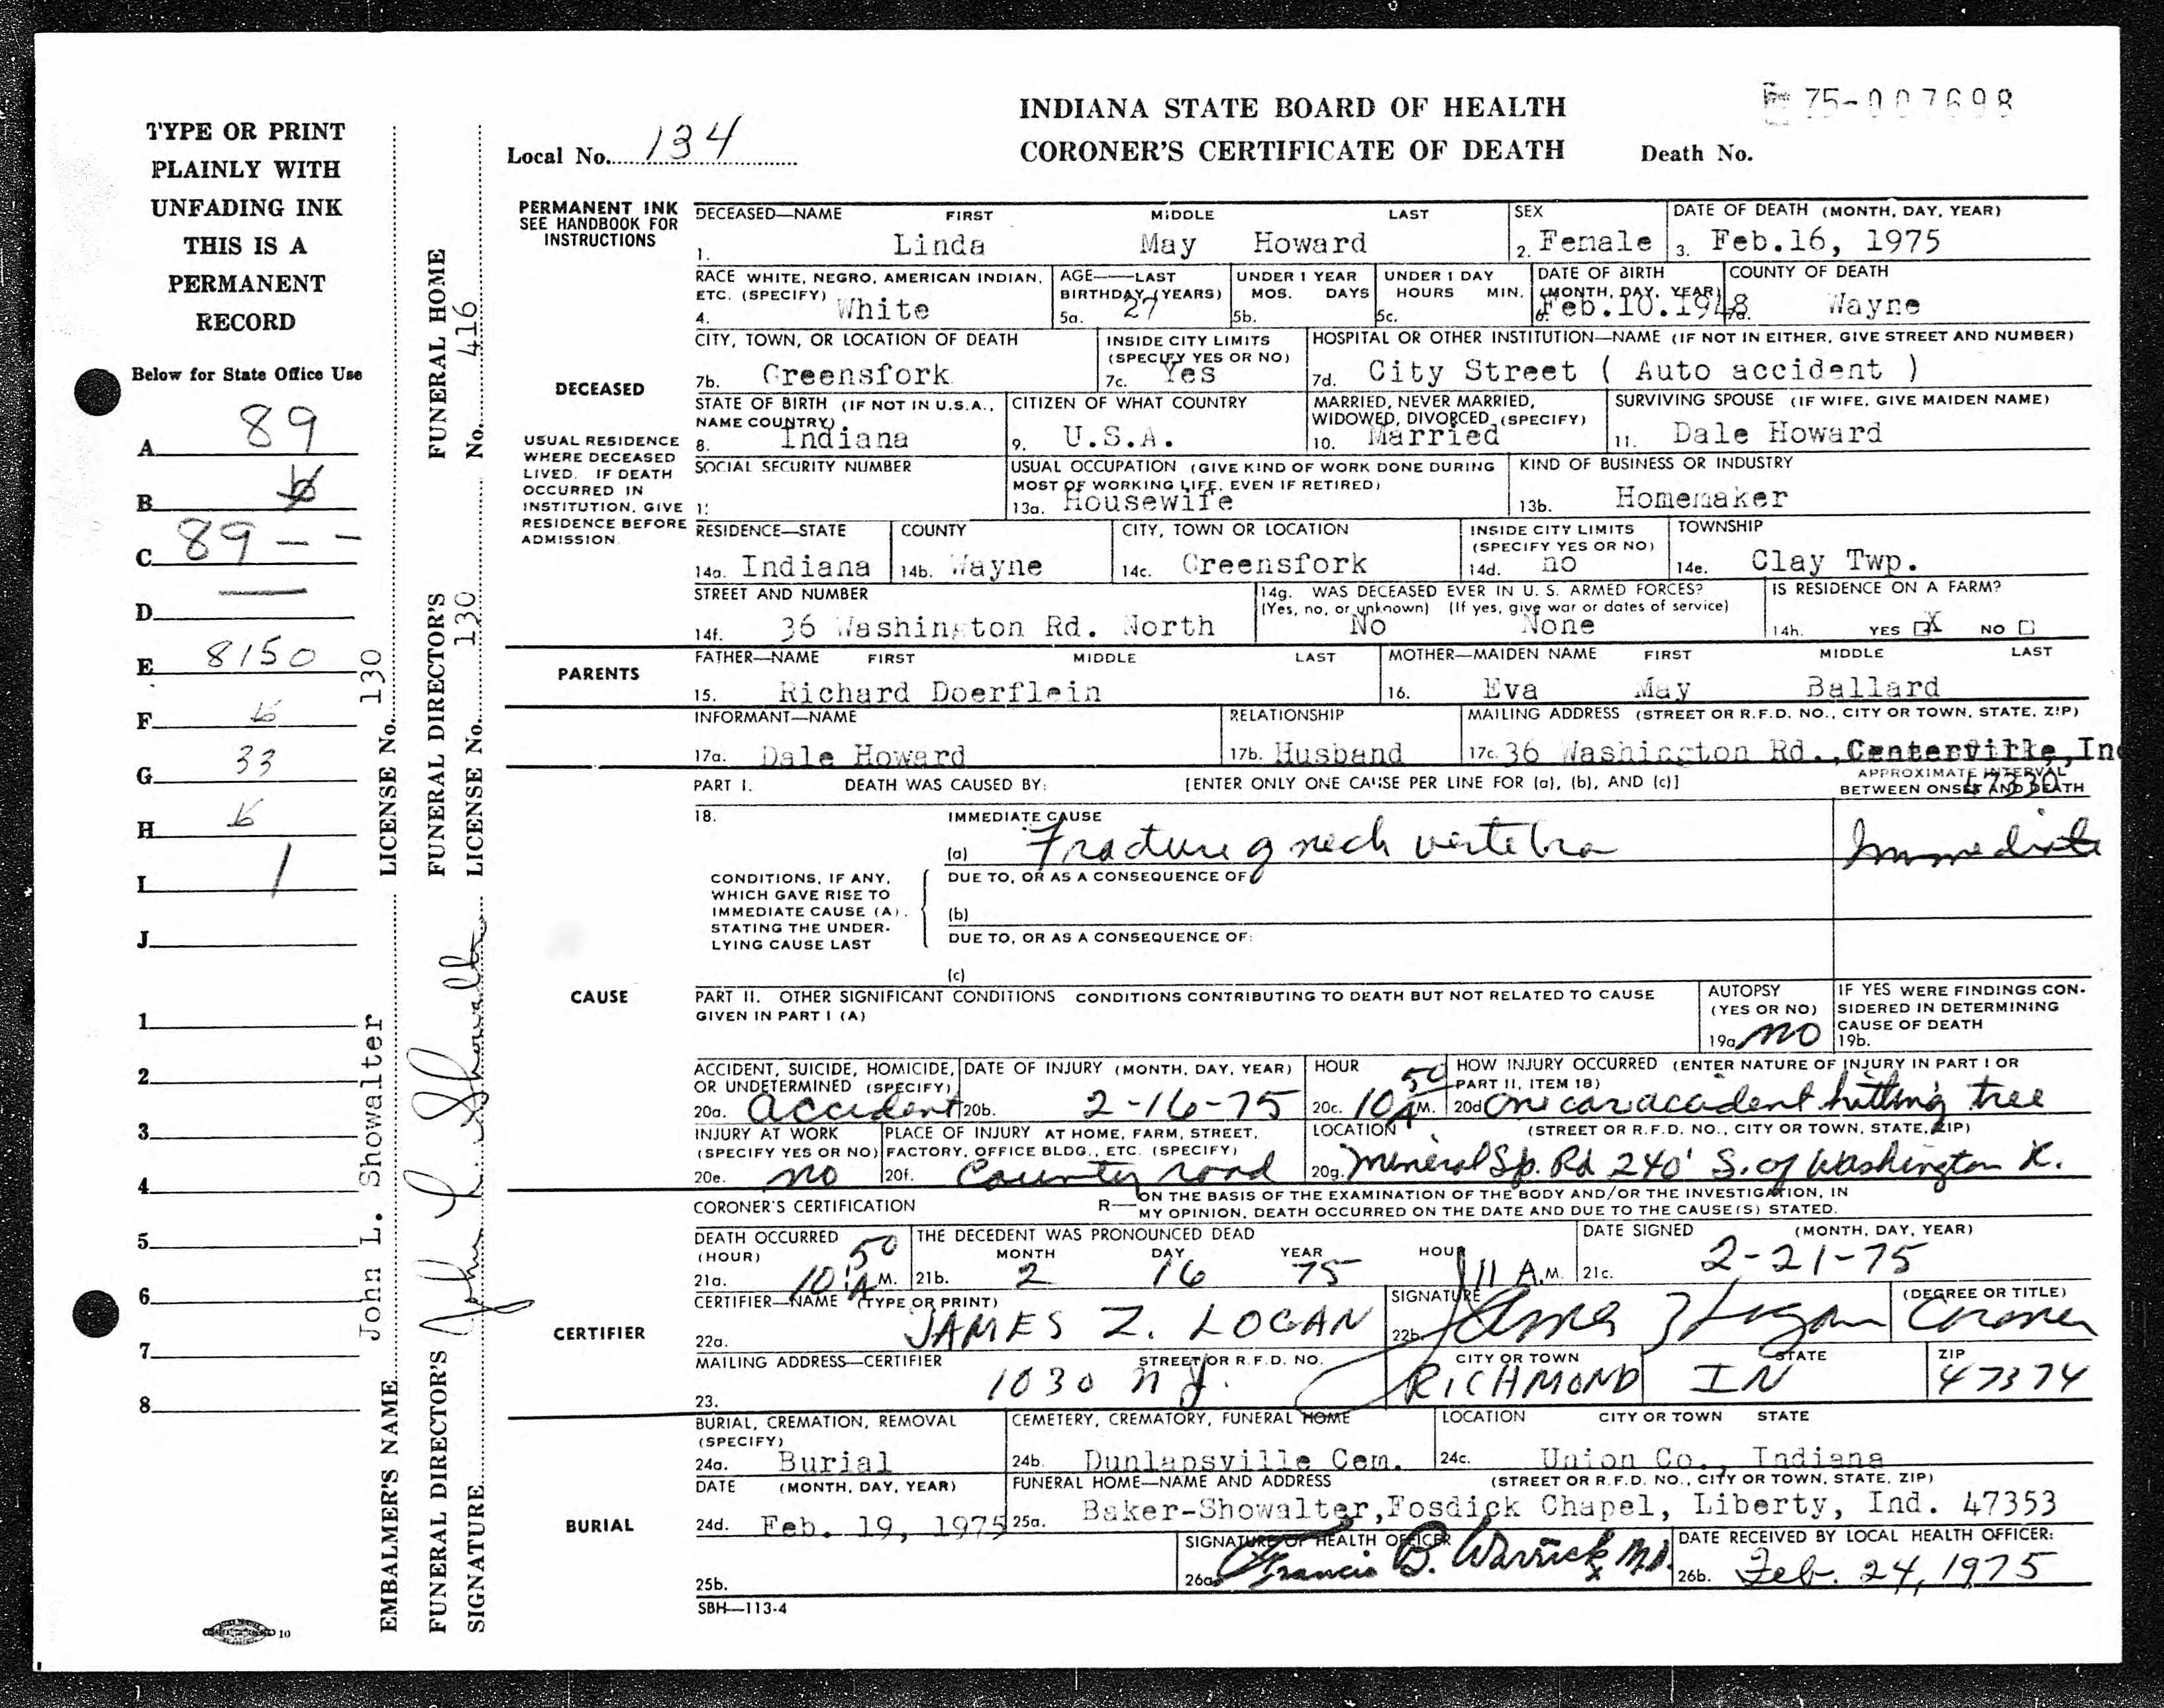 INDIANA STATE BOARD OF HEALTH
CORONER'S CERTIFICATE OF DEATH
75-007698
Death No.
Local No. 134
TYPE OR PRINT
PLAINLY WITH
UNFADING INK
THIS IS A
PERMANENT
RECORD
Below for State Office Use
A. 89
B.
C. 89 - -
D. —
E. 8150
F.
G. 33
H.
I. 1
J.
1.
2.
3.
4.
5.
6.
7.
8.
EMBALMER'S NAME John L. Showalter LICENSE No. 130
FUNERAL DIRECTOR'S SIGNATURE John L. Showalter
FUNERAL DIRECTOR'S LICENSE No. 130
FUNERAL HOME No. 416
PERMANENT INK
SEE HANDBOOK FOR
INSTRUCTIONS
DECEASED
USUAL RESIDENCE
WHERE DECEASED
LIVED. IF DEATH
OCCURRED IN
INSTITUTION, GIVE
RESIDENCE BEFORE
ADMISSION.
DECEASED—NAME FIRST MIDDLE LAST
1. Linda May Howard
SEX
2. Female
DATE OF DEATH (MONTH, DAY, YEAR)
3. Feb.16, 1975
RACE WHITE, NEGRO, AMERICAN INDIAN,
ETC. (SPECIFY)
4. White
AGE—LAST
BIRTHDAY (YEARS)
5a. 27
UNDER 1 YEAR
MOS. DAYS
5b.
UNDER 1 DAY
HOURS MIN.
5c.
DATE OF BIRTH
(MONTH, DAY, YEAR)
6. Feb.10.1948
COUNTY OF DEATH
7a. Wayne
CITY, TOWN, OR LOCATION OF DEATH
7b. Greensfork
INSIDE CITY LIMITS
(SPECIFY YES OR NO)
7c. Yes
HOSPITAL OR OTHER INSTITUTION—NAME (IF NOT IN EITHER, GIVE STREET AND NUMBER)
7d. City Street ( Auto accident )
STATE OF BIRTH (IF NOT IN U.S.A.,
NAME COUNTRY)
8. Indiana
CITIZEN OF WHAT COUNTRY
9. U.S.A.
MARRIED, NEVER MARRIED,
WIDOWED, DIVORCED (SPECIFY)
10. Married
SURVIVING SPOUSE (IF WIFE, GIVE MAIDEN NAME)
11. Dale Howard
SOCIAL SECURITY NUMBER
USUAL OCCUPATION (GIVE KIND OF WORK DONE DURING
MOST OF WORKING LIFE, EVEN IF RETIRED)
13a. Housewife
KIND OF BUSINESS OR INDUSTRY
13b. Homemaker
RESIDENCE—STATE
14a. Indiana
COUNTY
14b. Wayne
CITY, TOWN OR LOCATION
14c. Greensfork
INSIDE CITY LIMITS
(SPECIFY YES OR NO)
14d. no
TOWNSHIP
14e. Clay Twp.
STREET AND NUMBER
14f. 36 Washington Rd. North
14g. WAS DECEASED EVER IN U. S. ARMED FORCES?
(Yes, no, or unknown) (If yes, give war or dates of service)
No None
IS RESIDENCE ON A FARM?
14h. YES X NO
PARENTS
FATHER—NAME FIRST MIDDLE LAST
15. Richard Doerflein
MOTHER—MAIDEN NAME FIRST MIDDLE LAST
16. Eva May Ballard
INFORMANT—NAME
17a. Dale Howard
RELATIONSHIP
17b. Husband
MAILING ADDRESS (STREET OR R.F.D. NO., CITY OR TOWN, STATE, ZIP)
17c. 36 Washington Rd., Centerville, In
47330
PART I. DEATH WAS CAUSED BY: [ENTER ONLY ONE CAUSE PER LINE FOR (a), (b), AND (c)]
APPROXIMATE INTERVAL
BETWEEN ONSET AND DEATH
18. IMMEDIATE CAUSE
(a) Fracture of neck vertebra Immediate
CONDITIONS, IF ANY,
WHICH GAVE RISE TO
IMMEDIATE CAUSE (A),
STATING THE UNDER-
LYING CAUSE LAST
DUE TO, OR AS A CONSEQUENCE OF
(b)
DUE TO, OR AS A CONSEQUENCE OF:
(c)
CAUSE
PART II. OTHER SIGNIFICANT CONDITIONS CONDITIONS CONTRIBUTING TO DEATH BUT NOT RELATED TO CAUSE
GIVEN IN PART I (A)
AUTOPSY
(YES OR NO)
19a. no
IF YES WERE FINDINGS CON-
SIDERED IN DETERMINING
CAUSE OF DEATH
19b.
ACCIDENT, SUICIDE, HOMICIDE,
OR UNDETERMINED (SPECIFY)
20a. accident
DATE OF INJURY (MONTH, DAY, YEAR)
20b. 2-16-75
HOUR
20c. 10 50 A M.
HOW INJURY OCCURRED (ENTER NATURE OF INJURY IN PART I OR
PART II, ITEM 18)
20d. One car accident hitting tree
INJURY AT WORK
(SPECIFY YES OR NO)
20e. no
PLACE OF INJURY AT HOME, FARM, STREET,
FACTORY, OFFICE BLDG., ETC. (SPECIFY)
20f. County road
LOCATION (STREET OR R.F.D. NO., CITY OR TOWN, STATE, ZIP)
20g. Mineral Sp. Rd 240' S. of Washington R.
CORONER'S CERTIFICATION
R—ON THE BASIS OF THE EXAMINATION OF THE BODY AND/OR THE INVESTIGATION, IN
MY OPINION, DEATH OCCURRED ON THE DATE AND DUE TO THE CAUSE(S) STATED.
DEATH OCCURRED
(HOUR)
21a. 10 50 A M.
THE DECEDENT WAS PRONOUNCED DEAD
MONTH DAY YEAR HOUR
21b. 2 16 75 11 A.M.
DATE SIGNED (MONTH, DAY, YEAR)
21c. 2-21-75
CERTIFIER
CERTIFIER—NAME (TYPE OR PRINT)
22a. JAMES Z. LOGAN
SIGNATURE
22b. James Z Logan
(DEGREE OR TITLE)
Coroner
MAILING ADDRESS—CERTIFIER STREET OR R.F.D. NO. CITY OR TOWN STATE ZIP
23. 1030 RICHMOND IN 47374
BURIAL
BURIAL, CREMATION, REMOVAL
(SPECIFY)
24a. Burial
CEMETERY, CREMATORY, FUNERAL HOME
24b. Dunlapsville Cem.
LOCATION CITY OR TOWN STATE
24c. Union Co., Indiana
DATE (MONTH, DAY, YEAR)
24d. Feb. 19, 1975
FUNERAL HOME—NAME AND ADDRESS (STREET OR R.F.D. NO., CITY OR TOWN, STATE, ZIP)
25a. Baker-Showalter,Fosdick Chapel, Liberty, Ind. 47353
25b.
SIGNATURE OF HEALTH OFFICER
26a. Francis B. Warrick M.D.
DATE RECEIVED BY LOCAL HEALTH OFFICER:
26b. Feb. 24, 1975
SBH—113-4
10